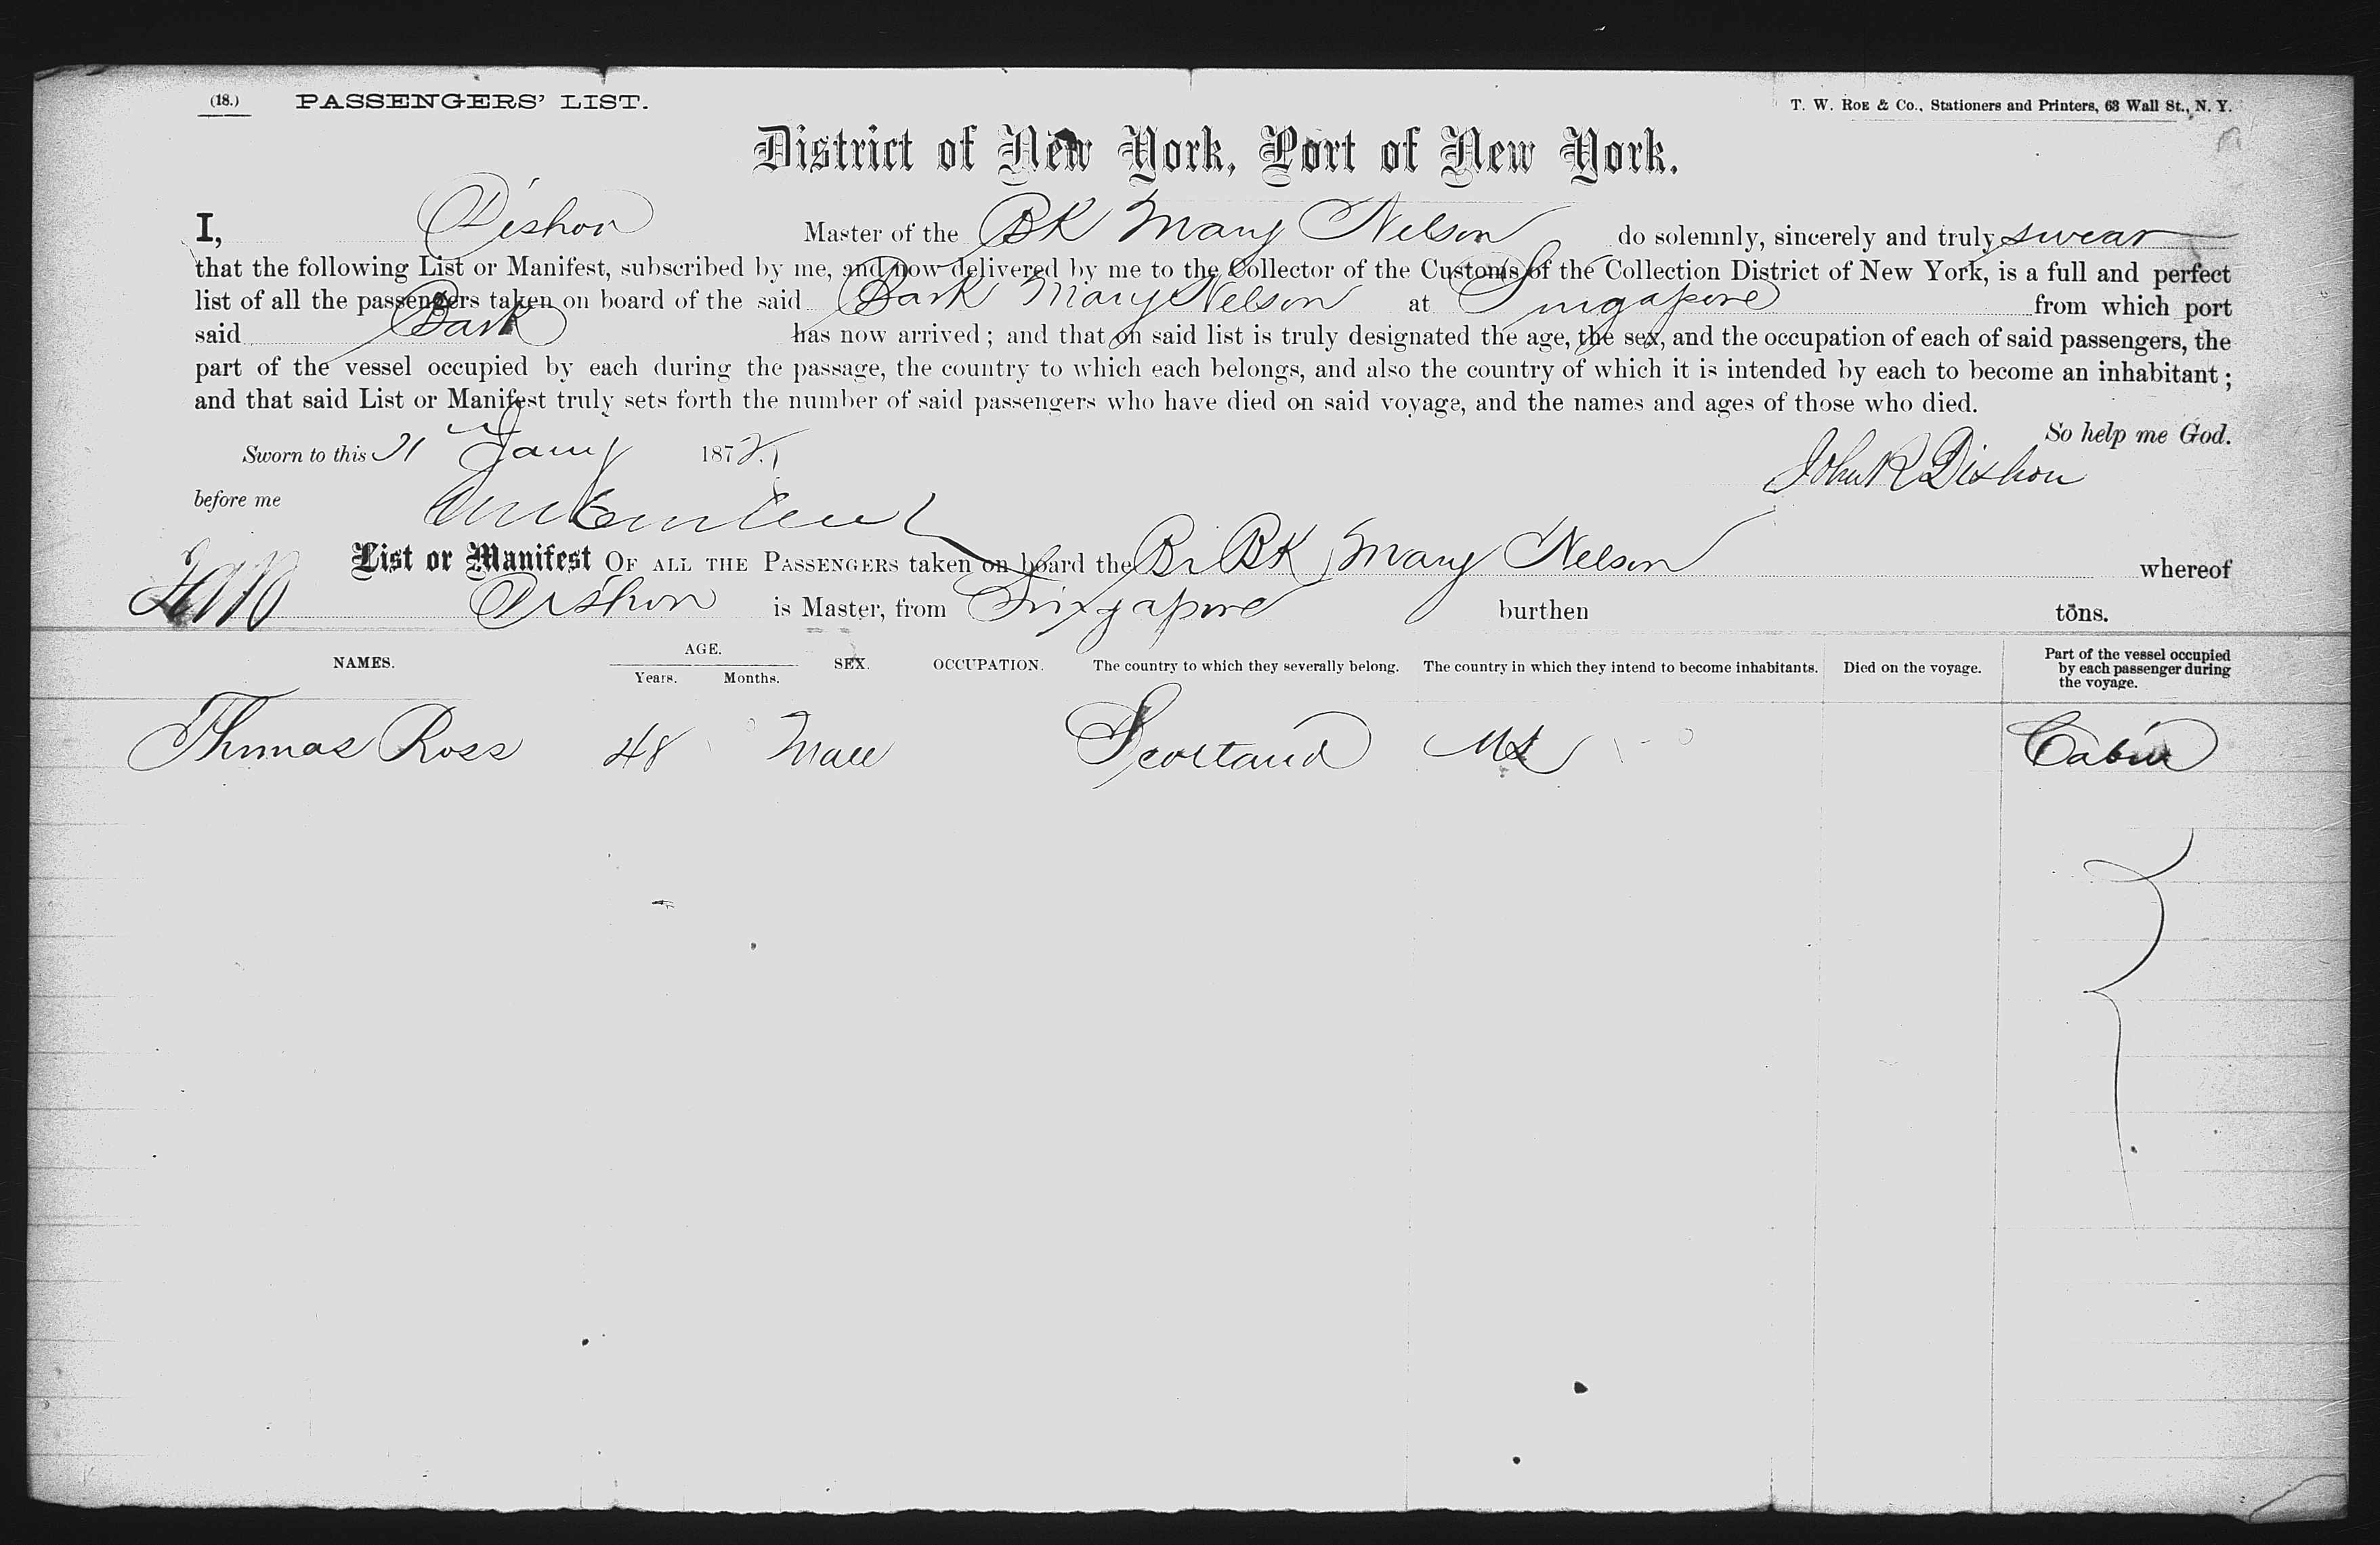 (18.) PASSENGERS' LIST. T. W. ROE & Co., Stationers and Printers, 63 Wall St., N. Y.
District of New York, Port of New York.
I, Dishon Master of the BK Mary Nelson do solemnly, sincerely and truly swear
that the following List or Manifest, subscribed by me, and now delivered by me to the Collector of the Customs of the Collection District of New York, is a full and perfect
list of all the passengers taken on board of the said Bark Mary Nelson at Singapore from which port
said Bark has now arrived; and that on said list is truly designated the age, the sex, and the occupation of each of said passengers, the
part of the vessel occupied by each during the passage, the country to which each belongs, and also the country of which it is intended by each to become an inhabitant;
and that said List or Manifest truly sets forth the number of said passengers who have died on said voyage, and the names and ages of those who died.
So help me God.
Sworn to this Jany 187 John R Dishon
before me
List or Manifest OF ALL THE PASSENGERS taken on board the Br BK Mary Nelson whereof
Dishon is Master, from Singapore burthen tons.
NAMES. AGE. Years. Months. SEX. OCCUPATION. The country to which they severally belong. The country in which they intend to become inhabitants. Died on the voyage. Part of the vessel occupied by each passenger during the voyage.
Thomas Ross 48 Male Scotland Cabin